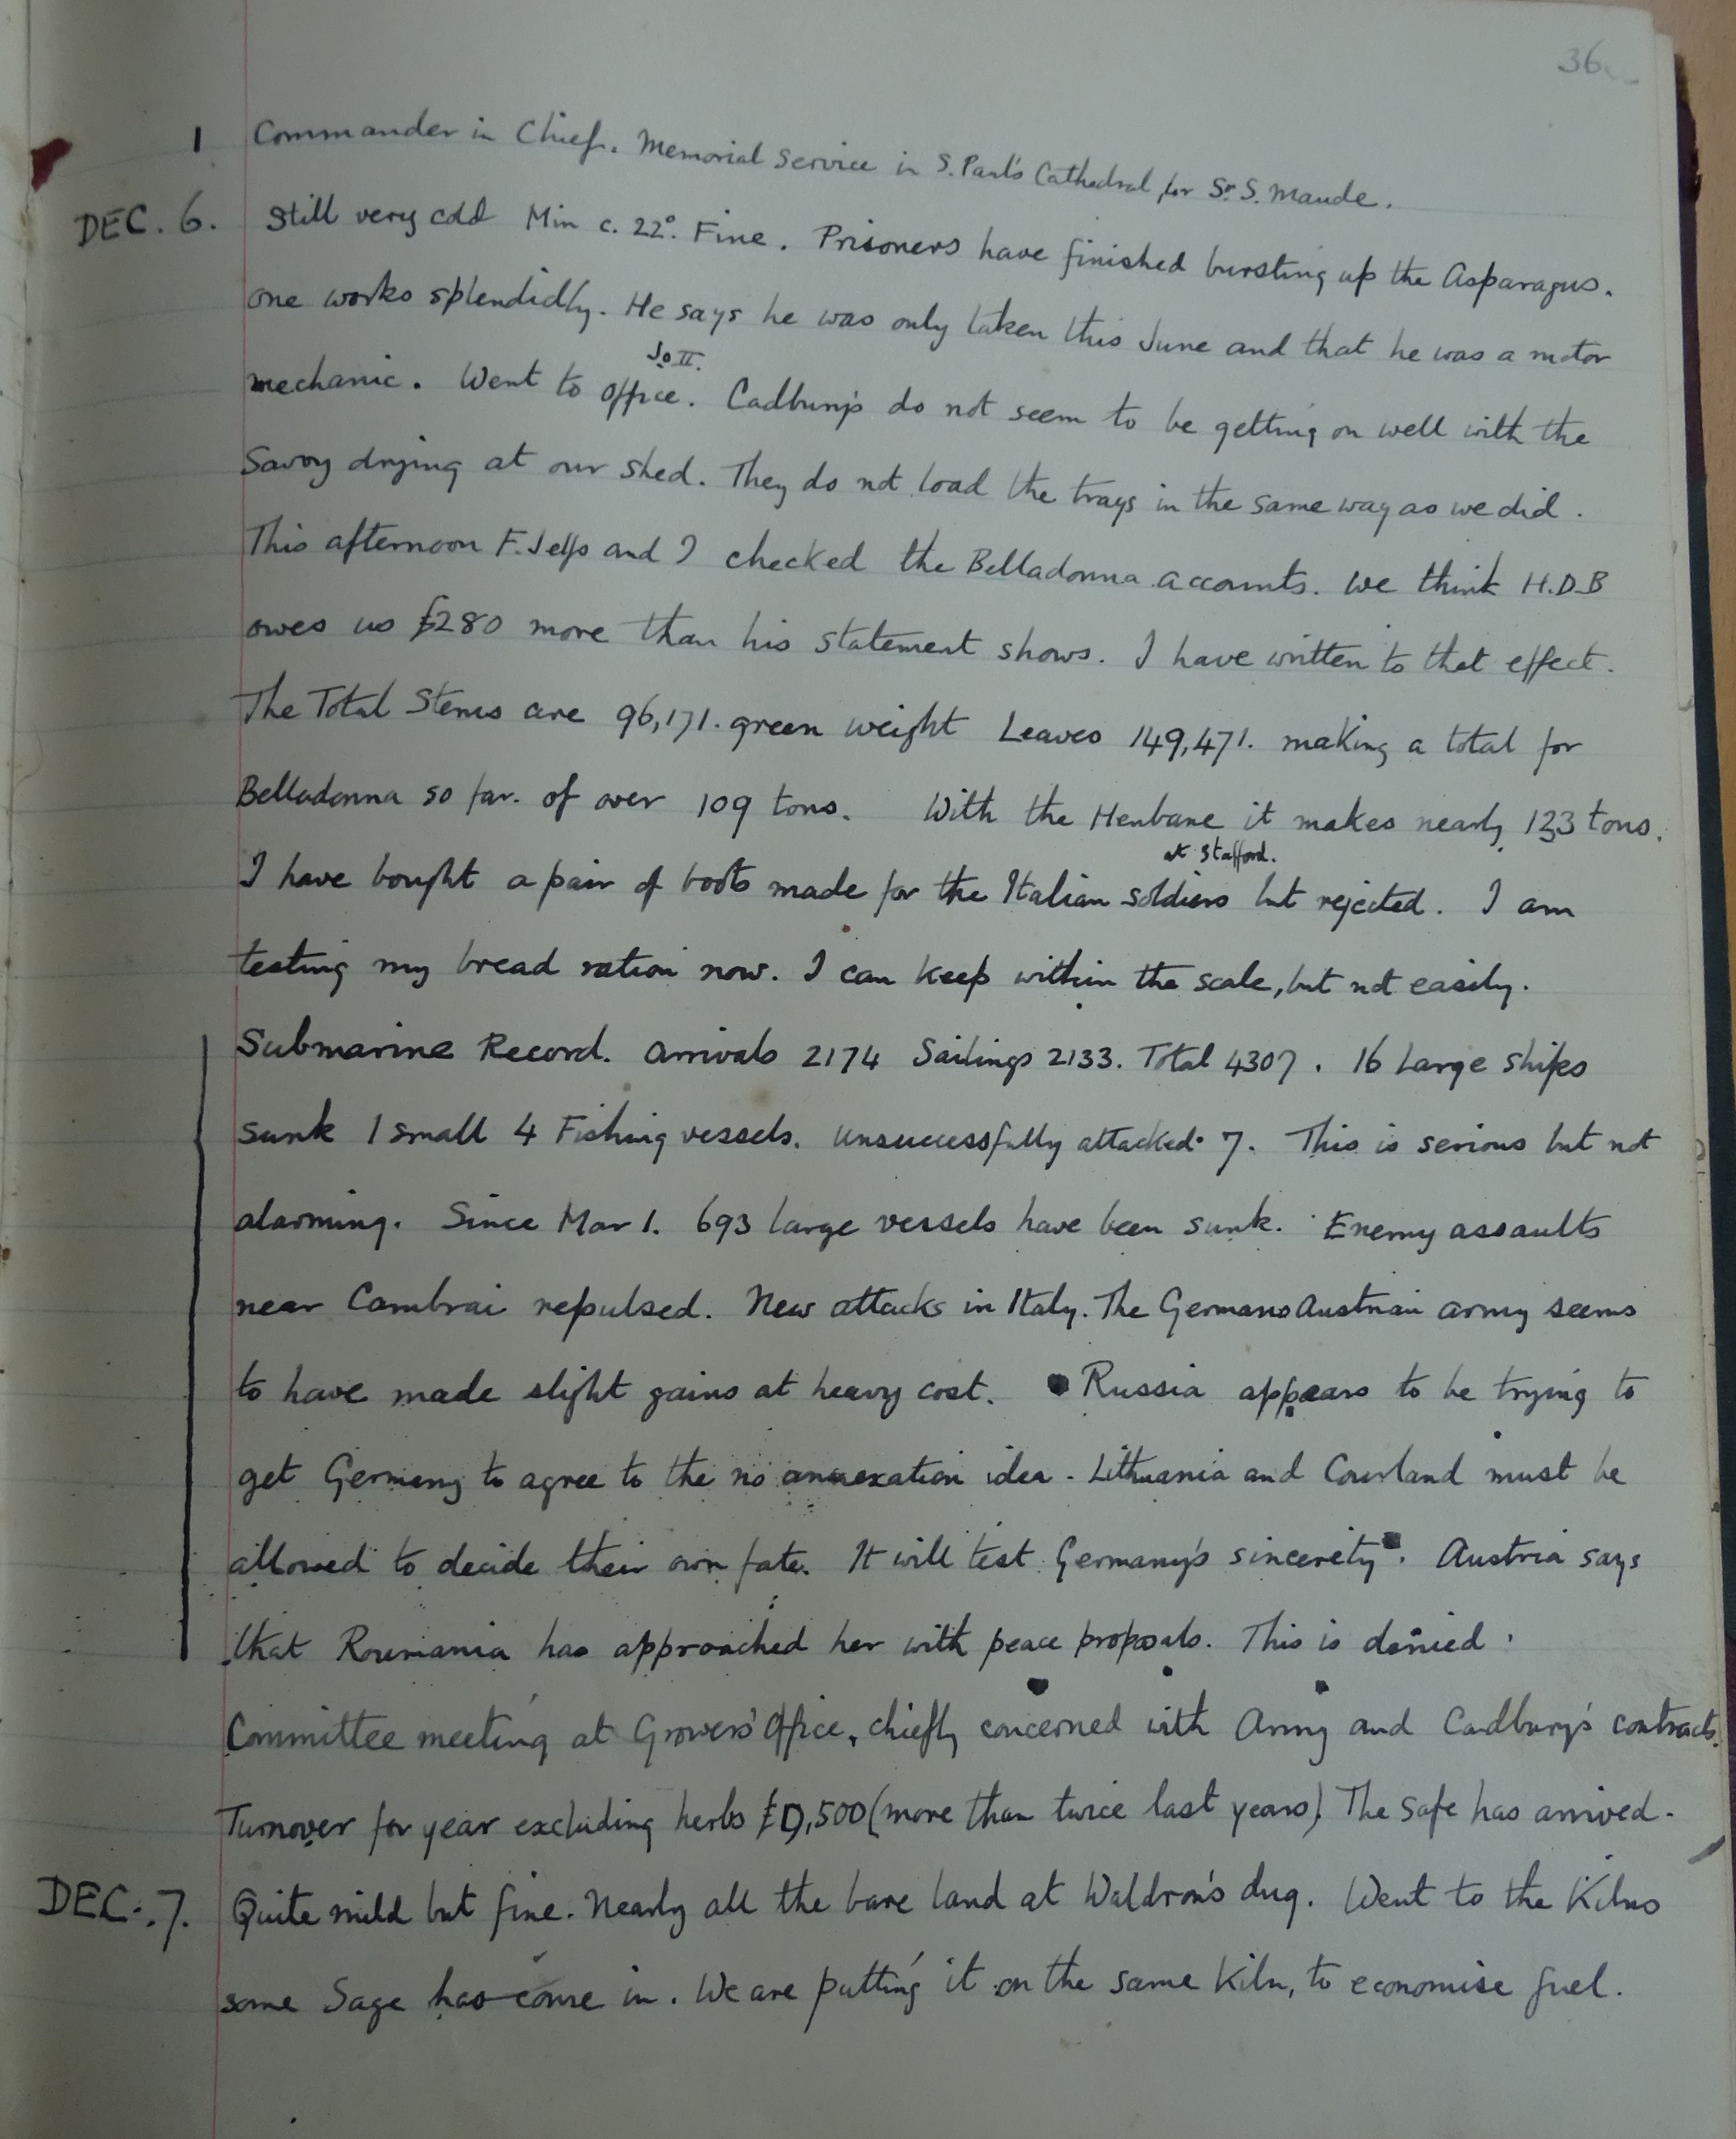 36
1 Commander in Chief. Memorial Service in S. Paul's Cathedral for Sr. S. Maude.
DEC. 6. Still very cold Min c. 22°. Fine. Prisoners have finished bursting up the Asparagus.
one works splendidly. He says he was only taken this June and that he was a motor
Jo II.
mechanic. Went to office. Cadbury's do not seem to be getting on well with the
Savoy drying at our shed. They do not load the trays in the same way as we did.
This afternoon F. Jelfs and I checked the Belladonna accounts. We think H.D.B
owes us £280 more than his statement shows. I have written to that effect.
The Total Stems are 96,171. green weight Leaves 149,471. making a total for
Belladonna so far. of over 109 tons. With the Henbane it makes nearly 123 tons.
at Stafford.
I have bought a pair of boots made for the Italian soldiers but rejected. I am
testing my bread ration now. I can keep within the scale, but not easily.
Submarine Record. Arrivals 2174 Sailings 2133. Total 4307. 16 Large ships
sunk 1 small 4 Fishing vessels. Unsuccessfully attacked 7. This is serious but not
alarming. Since Mar 1. 693 large vessels have been sunk. Enemy assaults
near Cambrai repulsed. New attacks in Italy. The Germano Austrian army seems
to have made slight gains at heavy cost. Russia appears to be trying to
get Germany to agree to the no annexation idea - Lithuania and Courland must be
allowed to decide their own fate. It will test Germany's sincerity. Austria says
that Roumania has approached her with peace proposals. This is denied.
Committee meeting at Growers' Office, chiefly concerned with Army and Cadbury's contracts.
Turnover for year excluding herbs ,500 (more than twice last years). The Safe has arrived -
DEC. 7. Quite mild but fine. Nearly all the bare land at Waldron's dug. Went to the Kilns
some Sage has come in. We are putting it on the same Kiln, to economise fuel.